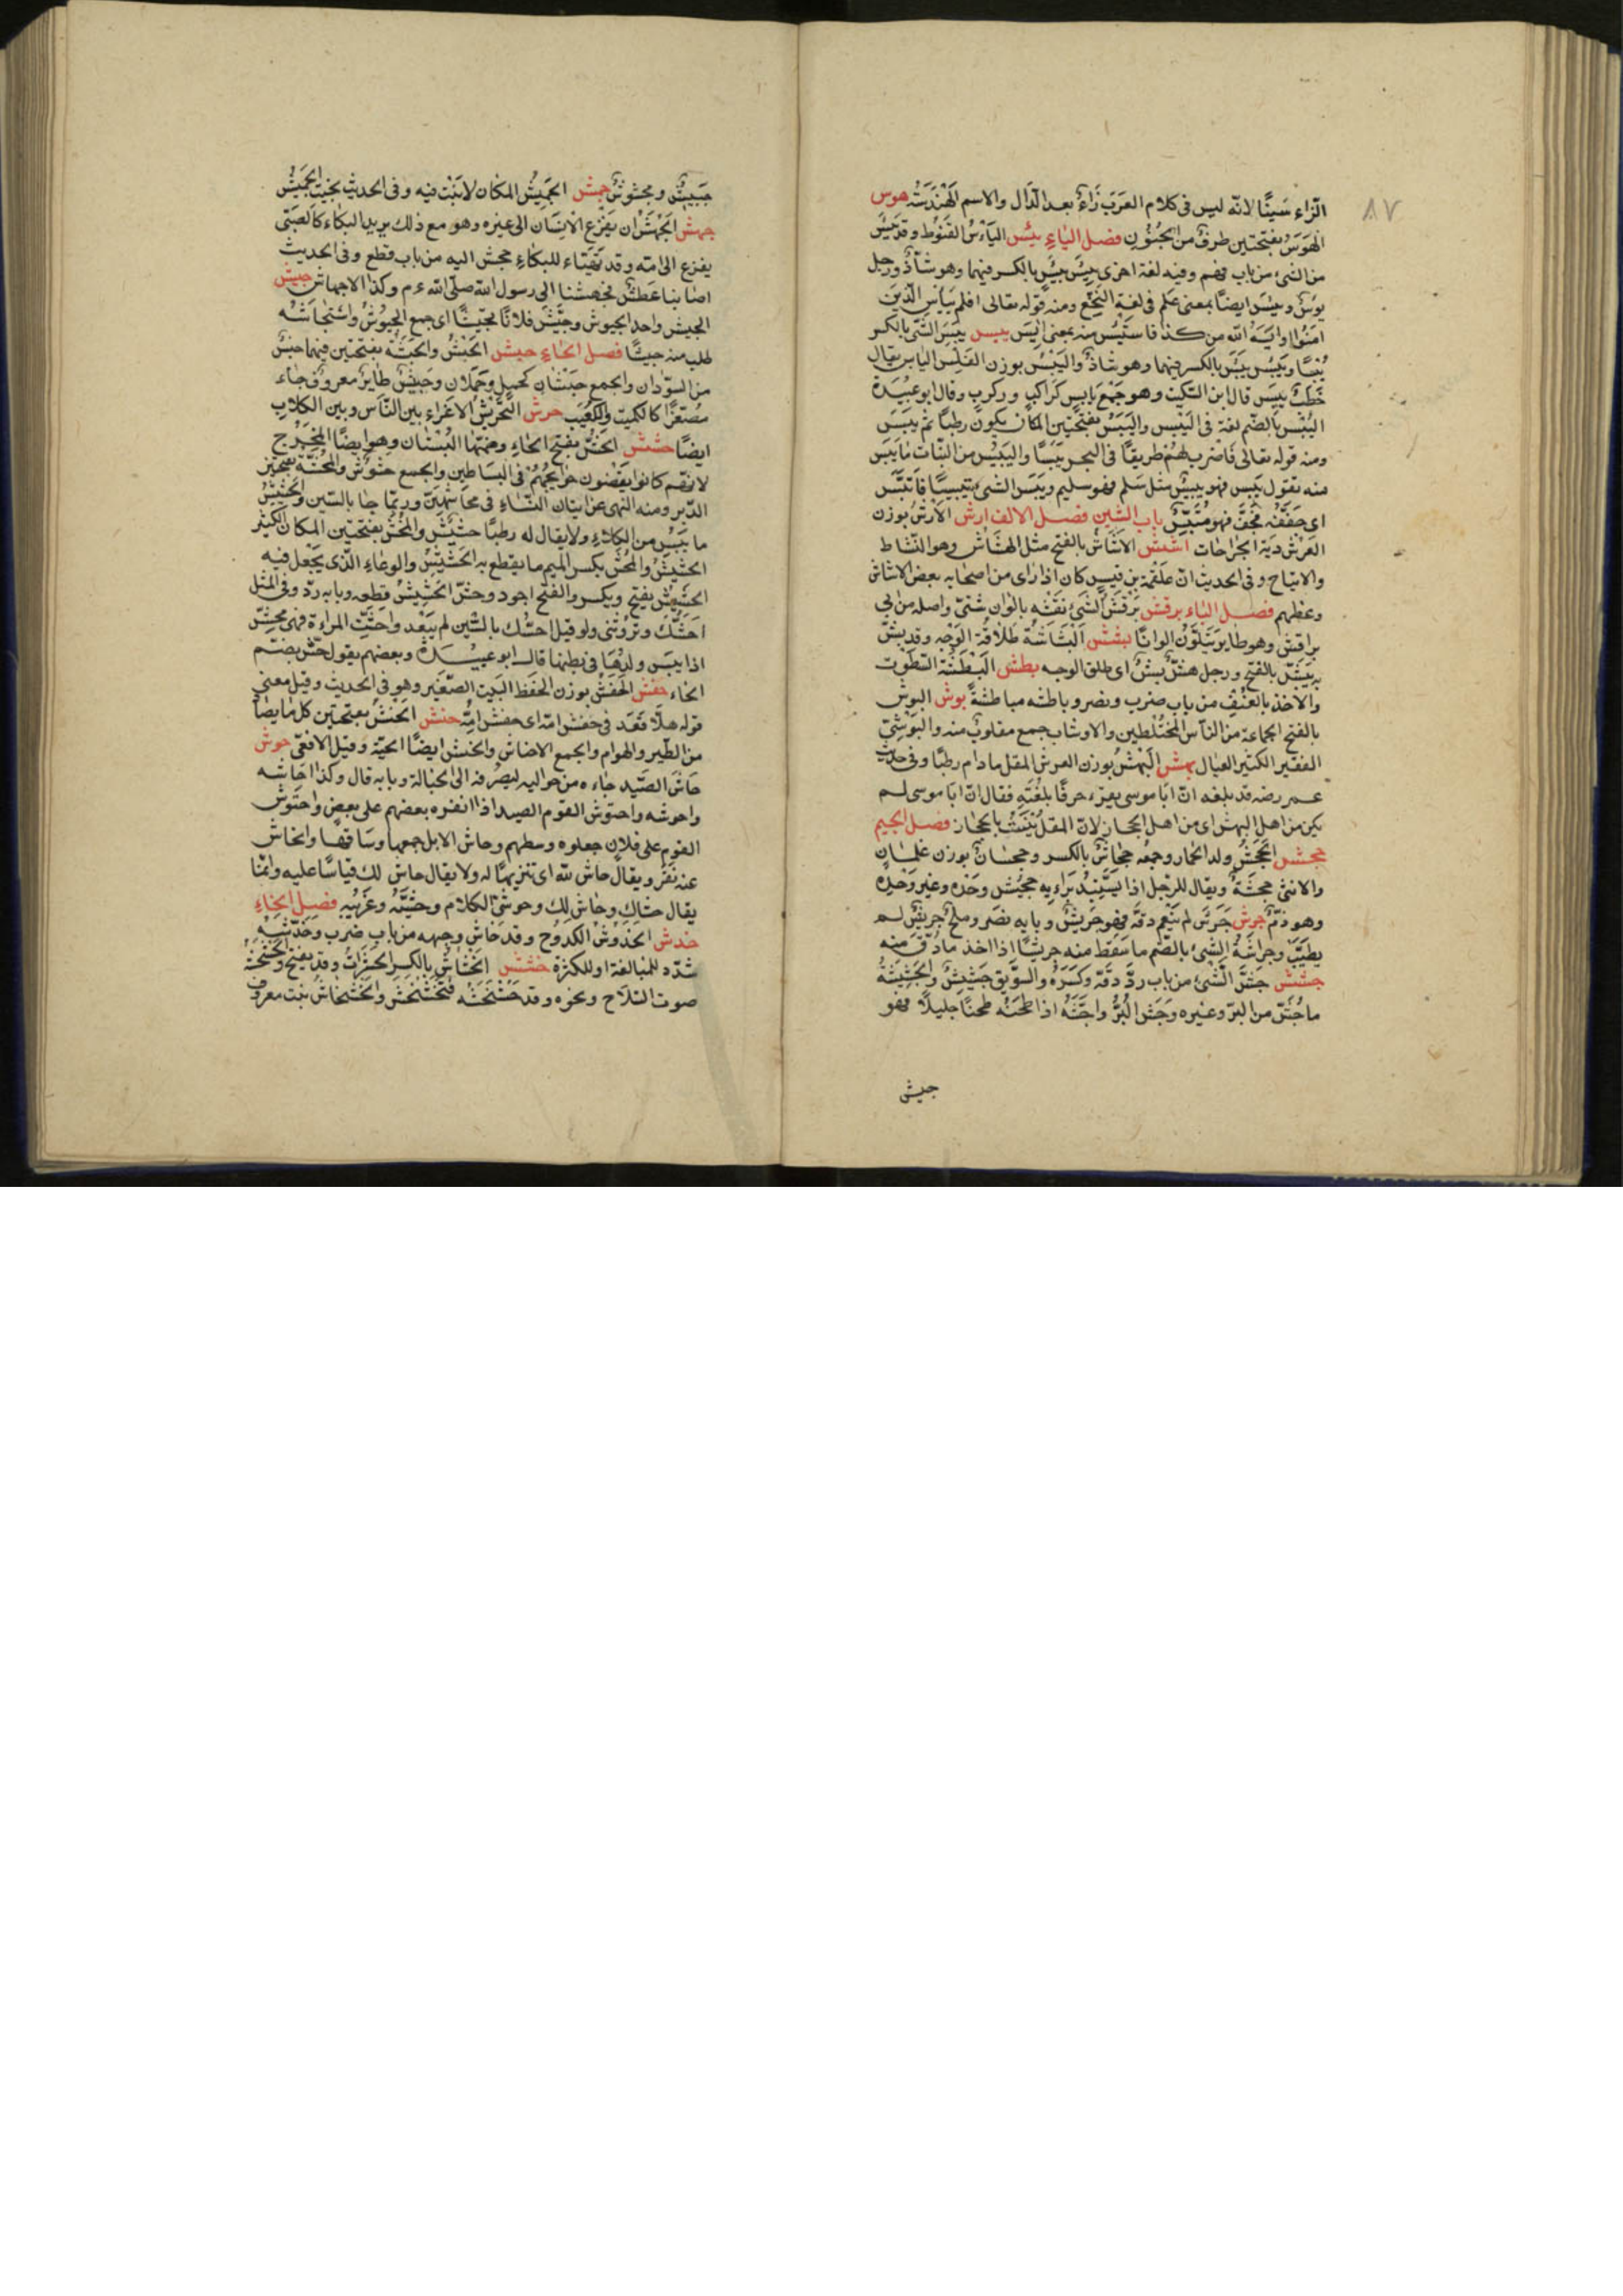 ٨٧
الزاء سينًا لانه ليس فى كلام العرب زاء بعد الدال والاسم الهندسة هوس
الهوس بفتحتين طرف من الجنون فصل الياء يئس اليأس القنوط وقد يئس
من الشئ من باب فهم وفيه لغة اخرى يئس ييئس بالكسر فيهما وهو شاذ ورجل
يؤس ويئس ايضا بمعنى علم فى لغة النخع ومنه قوله تعالى افلم ييأس الذين
امنوا وايسه الله من كذا فاستيئس منه بمعنى ايس يبس يبس الشئ بالكسر
يبسا ويبس ييبس بالكسر فيهما وهو شاذ واليبس بوزن الفلس اليابس يقال
حطب يبس قال ابن السكيت وهو جمع يابس كراكب وركب وقال ابو عبيدة
اليبس بالضم لغة فى اليبس واليبس بفتحتين المكان يكون رطبا ثم ييبس
ومنه قوله تعالى فاضرب لهم طريقا فى البحر يبسا واليبيس من النبات ما يبس
منه تقول يبس فهو يبيس مثل سلم فهو سليم ويبس الشئ تيبيسا فاتبس
اى جففه فجف فهو متبس باب الشين فصل الالف ارش الارش بوزن
العرش دية الجراحات اشش الاشاش بالفتح مثل الهشاش وهو النشاط
والارتياح وفى الحديث ان علقمة بن قيس كان اذا راى من اصحابه بعض الاشاش
وعظهم فصل الباء برقش برقش الشئ نقشه بالوان شتى واصله من ابى
براقش وهو طاير يتلون الوانا بشش البشاشة طلاقة الوجه وقد بش
به يبش بالفتح ورجل هش بش اى طلق الوجه بطش البطشة السطوة
والاخذ بالعنف من باب ضرب ونصر وباطشه مباطشة بوش البوش
بالفتح الجماعة من الناس المختلطين والاوشاب جمع مقلوب منه والبوشى
الفقير الكثير العيال بهش البهش بوزن العرش المقل ما دام رطبا وفى حديث
عمر رضه قد بلغه ان ابا موسى يقرء حرفا بلغته فقال ان ابا موسى لم
يكن من اهل البهش اى من اهل الحجاز لان المقل ينبت بالحجاز فصل الجيم
جحش الجحش ولد الحمار وجمعه جحاش بالكسر وجحشان بوزن غلمان
والانثى جحشة ويقال للرجل اذا يستبد برايه جحيش وحده وعيير وحده
وهو ذم جرش جرش لم ينعم دقه فهو جريش وبابه نصر وملح جريش لم
يطيب وجراشة الشئ بالضم ما سقط منه جريشا اذا اخذ ما دق منه
جشش جش الشئ من باب رد دقه وكسره والسويق جشيش والجشيشة
ما جش من البر وغيره وجش البر واجشه اذا طحنه طحنا جليلا فهو
جيش
جشيش ومجشوش جمش الجميش المكان لا نبت فيه وفى الحديث بخبت الجميش
جهش الجهش ان يفزع الانسان الى غيره وهو مع ذلك يريد البكاء كالصبى
يفزع الى امه وقد تهياء للبكاء جهش اليه من باب قطع وفى الحديث
اصابنا عطش فجهشنا الى رسول الله صلى الله ع م وكذا الاجهاش جيش
الجيش واحد الجيوش وجيش فلانا تجييشا اى جمع الجيوش واستجاشه
طلب منه جيشا فصل الحاء حبش الحبش والحبشة بفتحتين فيهما جنس
من السودان والجمع حبشان كحمل وحملان وحبيش طاير معروف جاء
مصغرا كالكميت والكعيب حرش التحريش الاغراء بين الناس وبين الكلاب
ايضا حشش الحش بفتح الحاء وضمها البستان وهو ايضا المخرج
لانهم كانوا يقضون حوايجهم فى البساطين والجمع حشوش والمحشة بفتحتين
الدبر ومنه النهى عن اتيان النساء فى محاشهن وربما جا بالسين والحشيش
ما يبس من الكلاء ولا يقال له رطبا حشيش والمحش بفتحتين المكان الكثير
الحشيش والمحش بكسر الميم ما يقطع به الحشيش والوعاء الذى يجعل فيه
الحشيش يفتح ويكسر والفتح اجود وحش الحشيش قطعه وبابه رد وفى المثل
احشك وتروثنى ولو قيل احسك بالسين لم يبعد واحشت المراءة فهى محش
اذا يبس ولدها فى بطنها قال ابو عبيدة وبعضهم يقول حش بضم
الحاء حفش الحفش بوزن الحفظ البيت الصغير وهو فى الحديث وقيل معنى
قوله هلا قعد فى حفش امه اى حفش امه حنش الحنش بفتحتين كل ما يصاد
من الطير والهوام والجمع الاحناش والحنش ايضا الحية وقيل الافعى حوش
حاش الصيد جاءه من حواليه ليصرفه الى الحبالة وبابه قال وكذا احاشه
واحوشه واحتوش القوم الصيد اذا انفره بعضهم على بعض واحتوش
القوم على فلان جعلوه وسطهم وحاش الابل جمعها وساقها وانحاش
عنه نفر ويقال حاش لله اى تنزيها له ولا يقال حاش لك قياسا عليه وانما
يقال حشاك وحاش لك وحوشى الكلام وحشيه وغريبه فصل الخاء
خدش الخدوش الكدوح وقد خاش وجهه من باب ضرب وخدشه
شدد للمبالغة او للكثرة خشش الخشاش بالكسر الحشرات وقد يفتح والخشخشة
صوت السلاح ونحوه وقد خشخشه فتخشخش والخشخاش نبت معروف